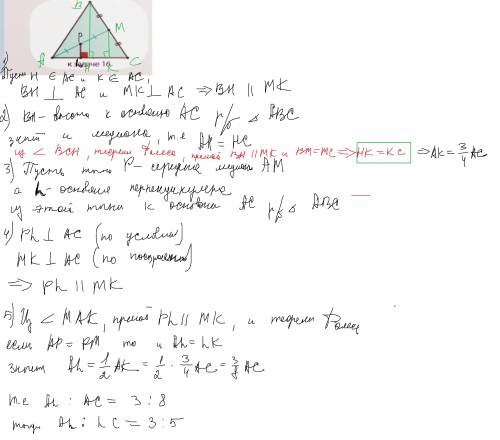 B
M
P
A H K C
к задаче 16.
1) Пусть H ∈ AC и K ∈ AC,
BH ⊥ AC и MK ⊥ AC ⇒ BH ∥ MK
2) BH - высота к основанию AC р/б △ ABC
значит и медиана, т.е AH = HC
из ∠ BCH, теореме Фалеса, прямой BH ∥ MK и BM=MC ⇒ HK = KC ⇒ AK = 3/4 AC
3) Пусть точка P - середина медианы AM
а h - основание перпендикуляра
из этой точки к основанию AC р/б △ ABC
4) Ph ⊥ AC (по условию)
MK ⊥ AC (по построению)
⇒ Ph ∥ MK
5) Из ∠ MAK, прямой Ph ∥ MK, и теореме Фалеса
если AP = PM то и Ah = hK
значит Ah = 1/2 AK = 1/2 · 3/4 AC = 3/8 AC
т.е Ah : AC = 3 : 8
тогда Ah : hC = 3 : 5